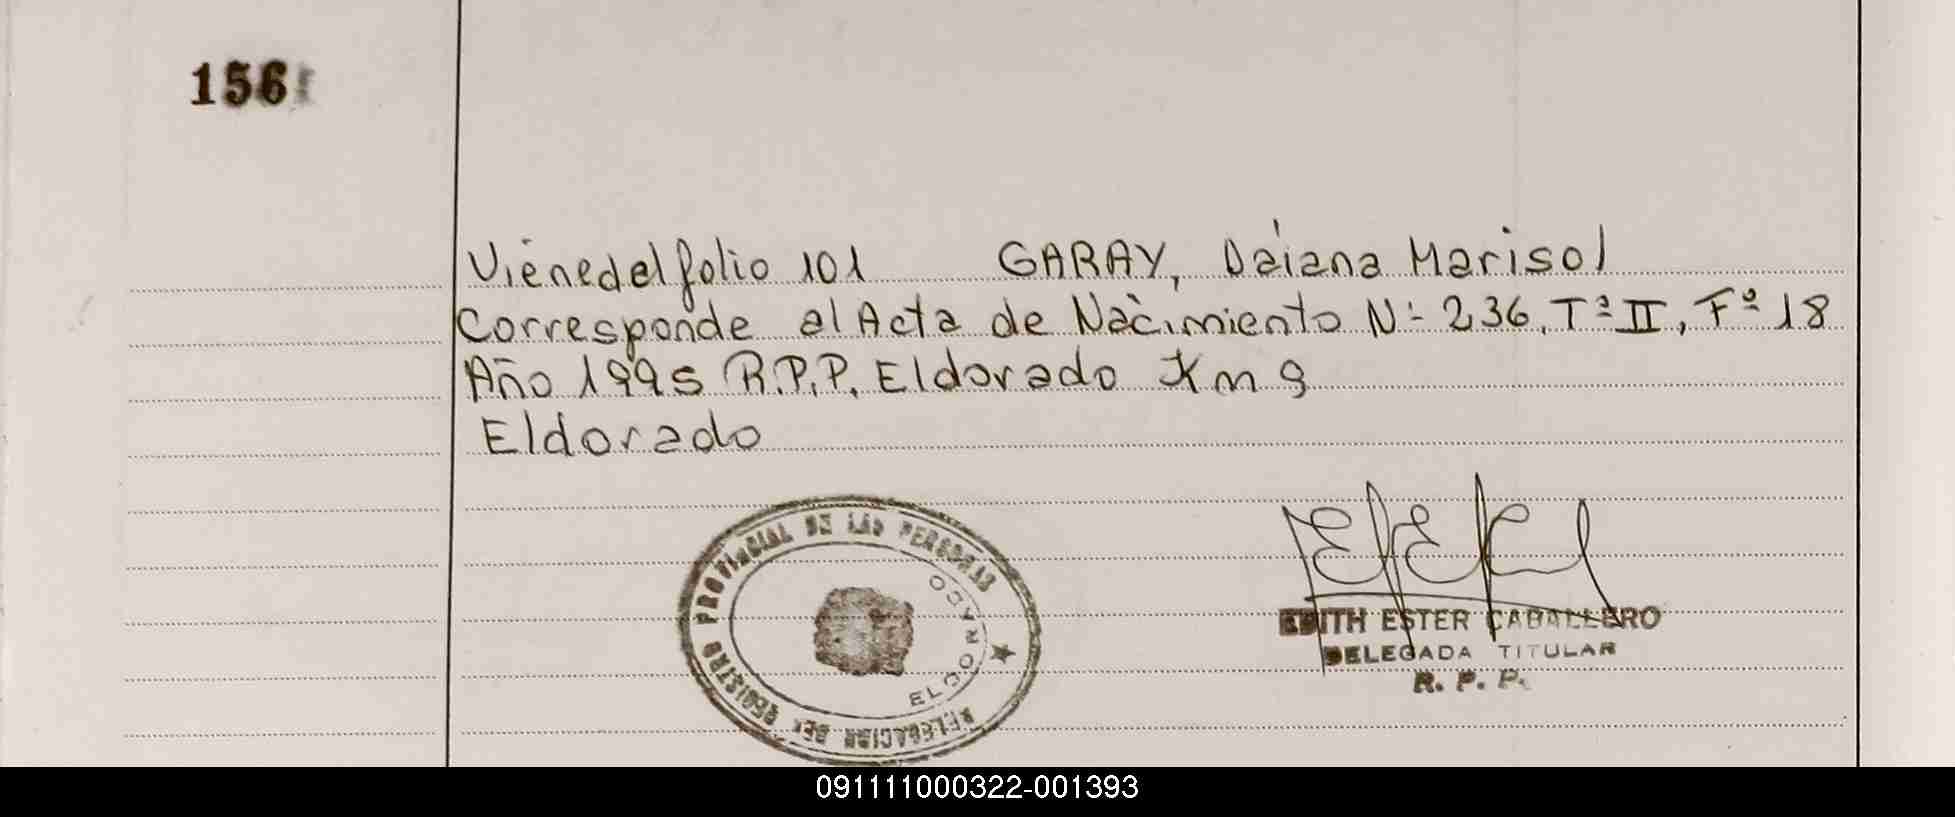 156
Viene del folio 101 GARAY, Daiana Marisol
Corresponde al Acta de Nacimiento Nº 236, Tº II, Fº 18
Año 1995 R.P.P. Eldorado Km 9
Eldorado
DELEGACION DEL REGISTRO PROVINCIAL DE LAS PERSONAS
ELDORADO
EDITH ESTER CABALLERO
DELEGADA TITULAR
R. P. P.
091111000322-001393